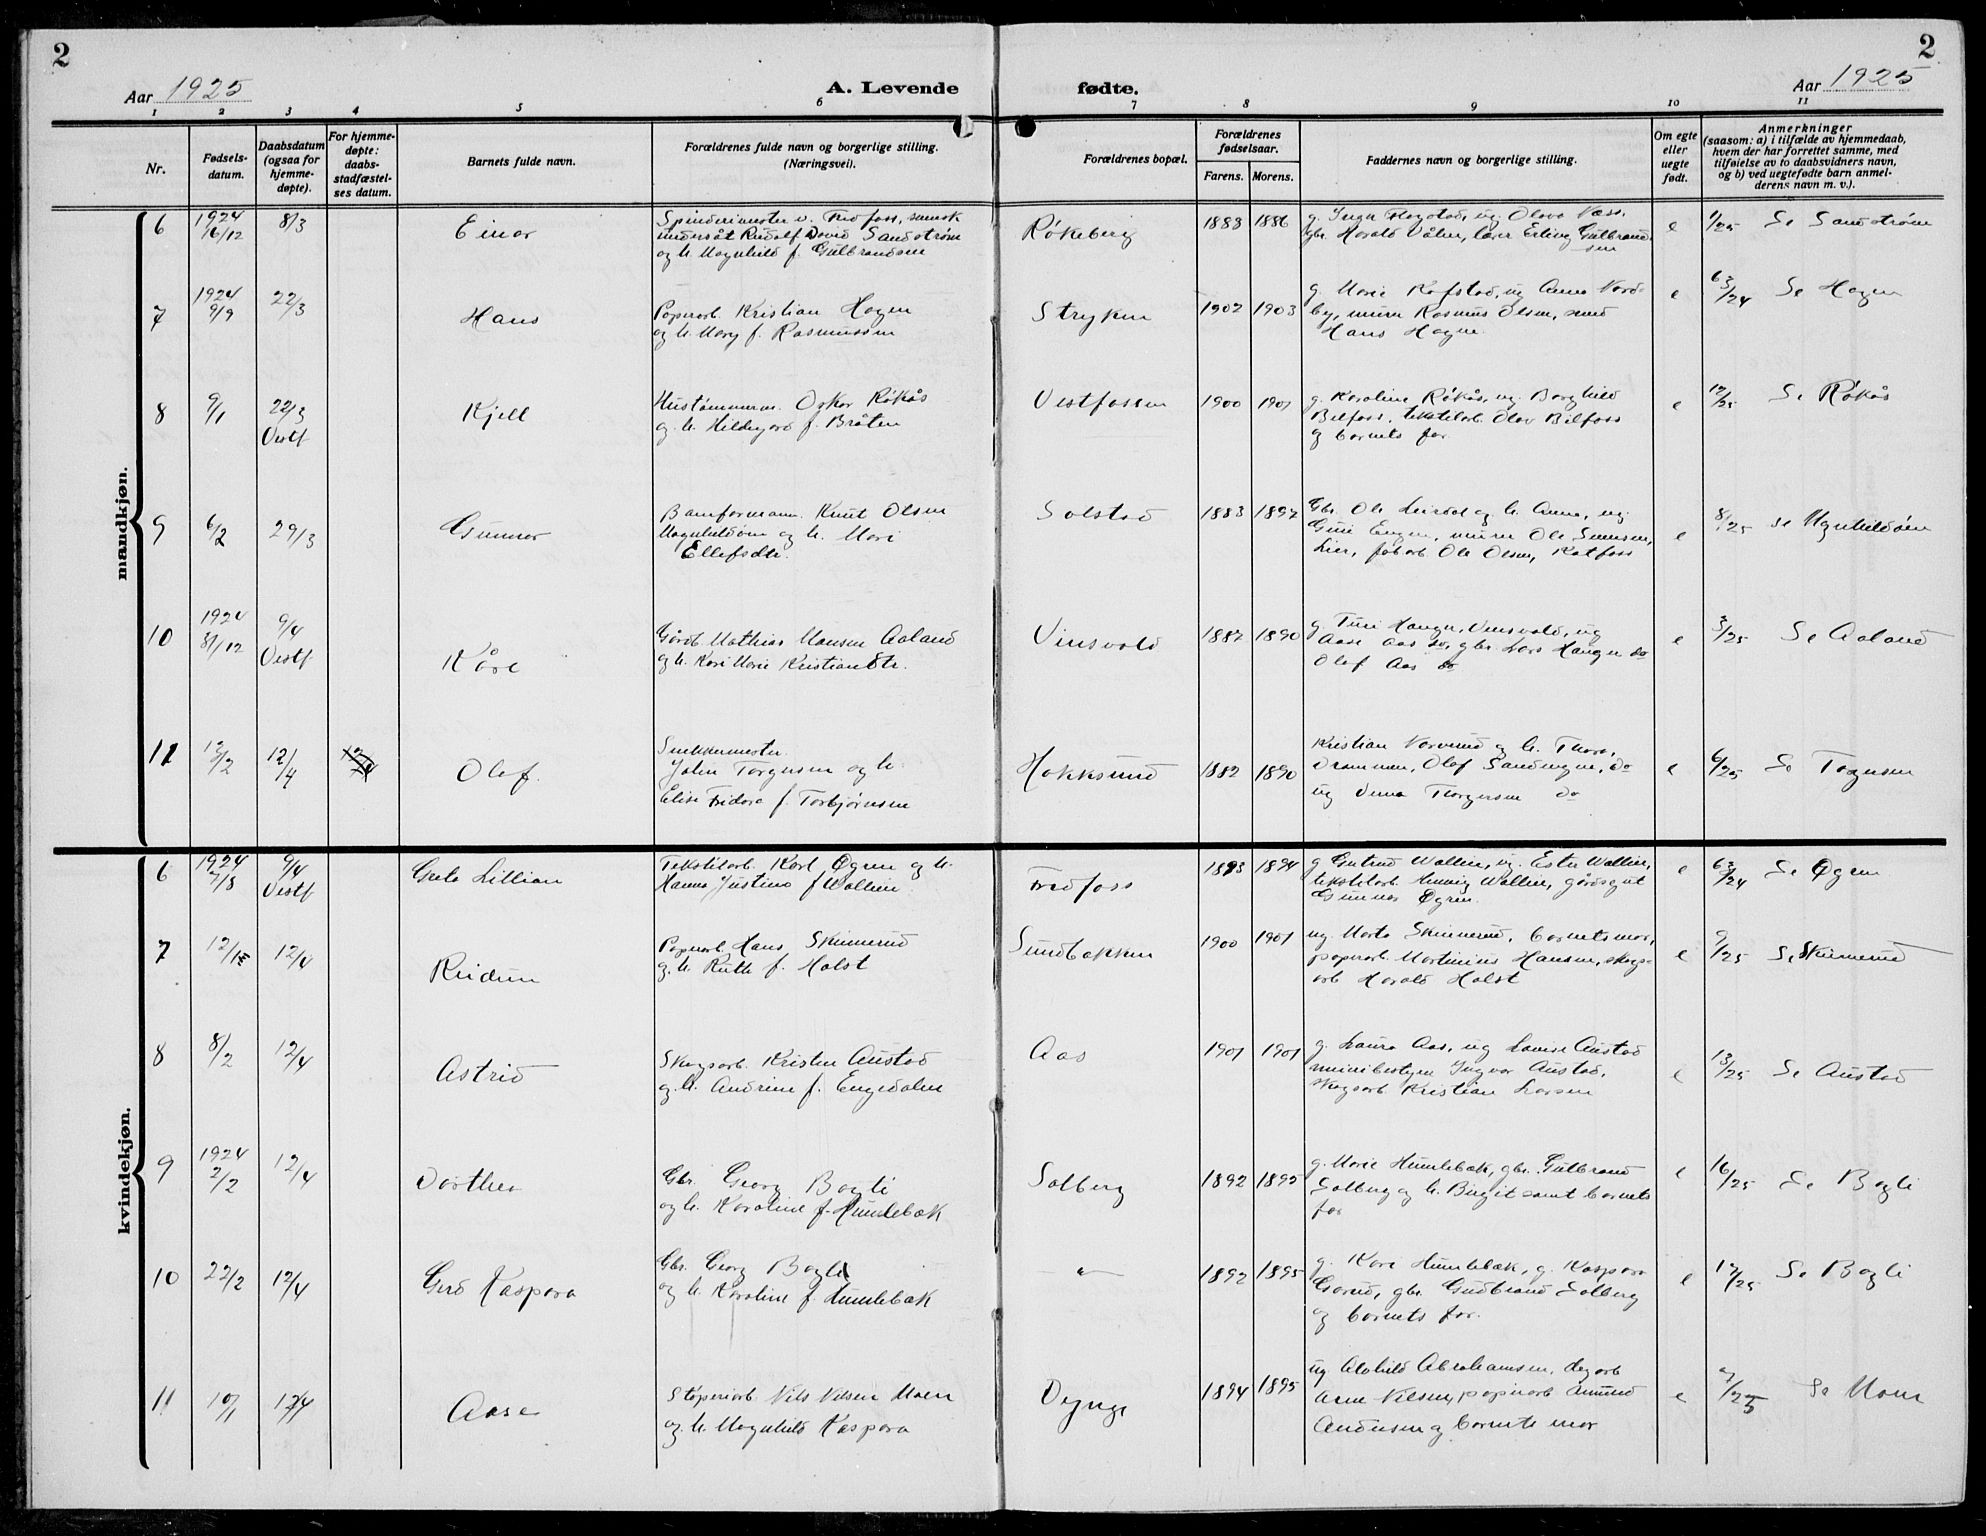 2
2
Aar 1925
A. Levende
fødte.
Aar 1925
1 2 3 4 5 6 7 8 9 10 11
Nr.
Fødsels-
datum.
Daabsdatum
(ogsaa for
hjemme-
døpte).
For hjemme-
døpte:
daabs-
stadfæstel-
ses datum.
Barnets fulde navn.
Forældrenes fulde navn og borgerlige stilling.
(Næringsvei).
Forældrenes bopæl.
Forældrenes
fødselsaar.
Farens. Morens.
Faddernes navn og borgerlige stilling.
Om egte
eller
uegte
født.
Anmerkninger
(saasom: a) i tilfælde av hjemmedaab,
hvem der har forrettet samme, med
tilføielse av to daabsvidners navn,
og b) ved uegtefødte barn anmel-
derens navn m. v.).
mandkjøn.
6 1924 16/12 8/3 Einar
Spinderimester v. Fredfoss, svensk
undersåt Rudolf David Sandstrøm
og h. Magnhild f. Gulbrandsen
Røkeberg 1883 1886
g. Inga Flagstad, ug. Olava Næss,
gbr. Harald Vålen, lærer Erling Gulbrand-
sen
e 1/25 Se Sandstrøm
7 1924 9/9 22/3 Hans
Papirarb. Kristian Hagen
og h. Mary f. Rasmussen
Stryken 1902 1903
g. Marie Kofstad, ug Anna Nord-
by, murer Rasmus Olsen, smed
Hans Hagen.
e 63/24 Se Hagen
8 9/1 22/3 Vestf Kjell
Hustømmerm. Oskar Røkås
og h. Hildegard f. Bråten
Vestfossen 1900 1901
g. Karoline Røkås, ug. Borghild
Bilfoss, tekstilarb. Olav Bilfoss
og barnets far.
e 12/25 Se Røkås
9 6/2 29/3 Gunnar
Banformann. Knut Olsen
Magnhildøen og h. Mari
Ellefsdtr.
Solstad 1883 1892
Gbr. Ole Leirdal og h. Anna, ug.
Guri Engen, murer Ole Svensen,
Lier, fabarb. Ole Olsen, Katfoss
e 8/25 Se Magnhildøen
10 1924 31/12 9/4 Vestf Kåre
Gårdb. Mathias Hansen Aaland
og h. Kari Marie Kristiansdtr.
Vinsvold 1882 1890
g. Turi Haugen, Vinsvold, ug
Aase Aas do, gbr. Lars Haugen do
Olaf Aas do
e 3/25 Se Aaland
11 13/2 12/4 Olaf.
Snekkermester.
John Torgersen og h.
Elise Fridora f. Torbjørnsen
Hokksund 1882 1890
Kristian Narverud og h. Thora,
Drammen, Olaf Sandengen, do
ug Verna Thorgersen do
e 6/25 Se Torgersen
kvindekjøn.
6 1924 7/8 9/4 Vestf Greta Lillian
Tekstilarb. Karl Øgren og h.
Hanna Justina f Wallin.
Fredfoss 1893 1894
g Gertrud Wallin, ug. Ester Wallin,
tekstilarb. Henning Wallin, gårdsgut
Gunnar Øgren.
e 62/24 Se Øgren
7 12/1 12/4 Reidun
Papirarb. Hans Skinnerud
g. h. Ruth f. Holst
Sundbakken 1900 1901
ug. Marta Skinnerud, barnets mor,
papirarb Martinius Hansen, skogs-
arb Harald Holst
e 9/25 Se Skinnerud
8 8/2 12/4 Astrid
Skogsarb. Kristen Austad
og h. Andrine f. Engedalen
Aas 1901 1901
g. Laura Aas, ug Louise Austad
meieribestyrer Ingvar Austad,
skogsarb. Kristian Larsen
e 13/25 Se Austad
9 1924 2/2 12/4 Dorthea
Gbr. Georg Bagli
og h. Karoline f. Humlebæk
Solberg 1892 1895
g. Marie Humlebæk, gbr. Gulbrand
Solberg og h. Birgit samt barnets
far
e 16/25 Se Bagli
10 22/2 12/4 Gerd Kaspara
Gbr. Georg Bagli
og h. Karoline f. Humlebæk
— " — 1892 1895
g. Kari Humlebæk, g. Kaspara
Gorud, gbr. Gudbrand Solberg
og barnets far.
e 17/25 Se Bagli
11 10/1 12/4 Aase
Støperiarb. Nils Nilsen Moen
og h. Magnhild Kaspara
Dynge 1894 1895
ug Alvhild Abrahamsen, dagarb
Arne Nilsen, papirarb Amund
Andersen og barnets mor
e 7/25 Se Moen